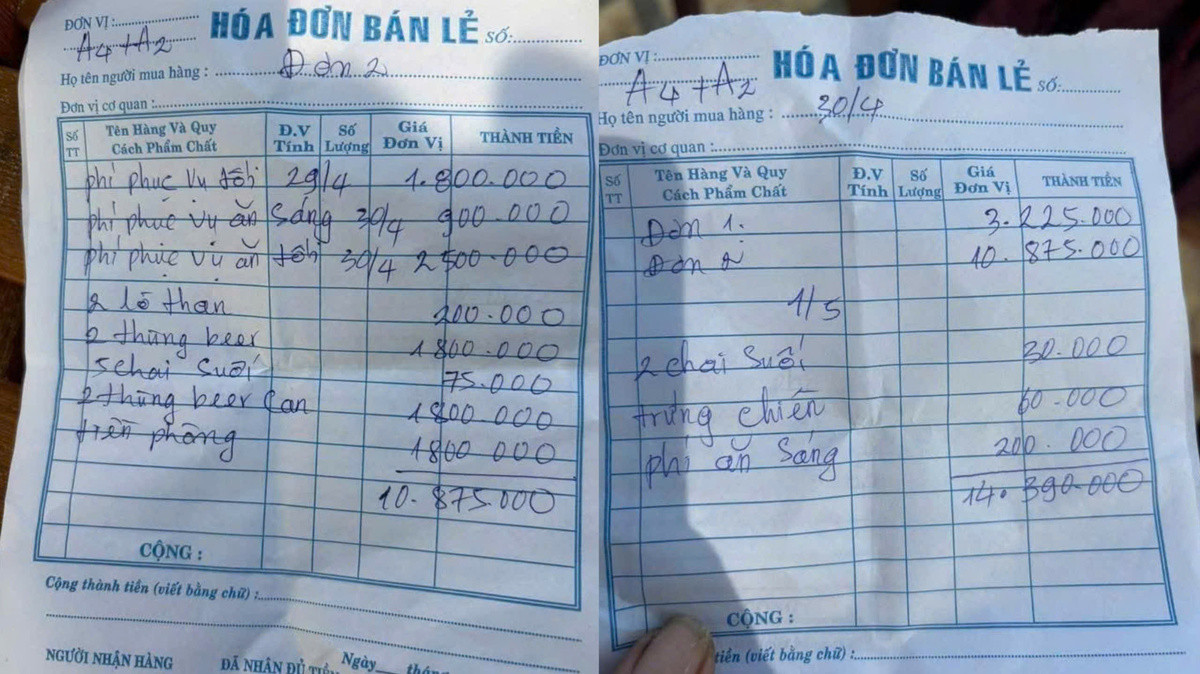 ĐƠN VỊ:
A4+A2
HÓA ĐƠN BÁN LẺ SỐ:
Họ tên người mua hàng : Đơn 2
Đơn vị cơ quan :
Số TT Tên Hàng Và Quy Cách Phẩm Chất Đ.V Tính Số Lượng Giá Đơn Vị THÀNH TIỀN
phí phục vụ tối 29/4 1.800.000
phí phục vụ ăn sáng 30/4 900.000
phí phục vụ ăn tối 30/4 2500.000
2 lò than 200.000
2 thùng beer 1800.000
5 chai suối 75.000
2 thùng beer Can 1800.000
tiền phòng 1800 000
10.875.000
CỘNG :
Cộng thành tiền (viết bằng chữ) :
NGƯỜI NHẬN HÀNG ĐÃ NHẬN ĐỦ TIỀN Ngày tháng
ĐƠN VỊ:
A4+A2
HÓA ĐƠN BÁN LẺ SỐ:
Họ tên người mua hàng : 30/4
Đơn vị cơ quan :
Số TT Tên Hàng Và Quy Cách Phẩm Chất Đ.V Tính Số Lượng Giá Đơn Vị THÀNH TIỀN
Đơn 1. 3.225.000
Đơn 2 10.875.000
1/5
2 chai suối 30.000
trứng chiên 60.000
phí ăn sáng 200.000
14.390.000
CỘNG :
tiền (viết bằng chữ) :